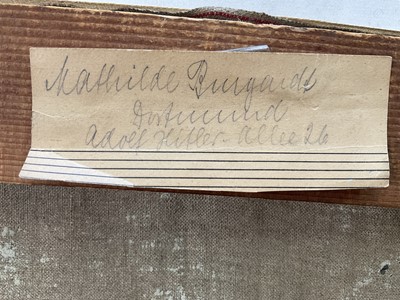 Mathilde Burgardt
Dortmund
Adolf Hitler-Allee 26